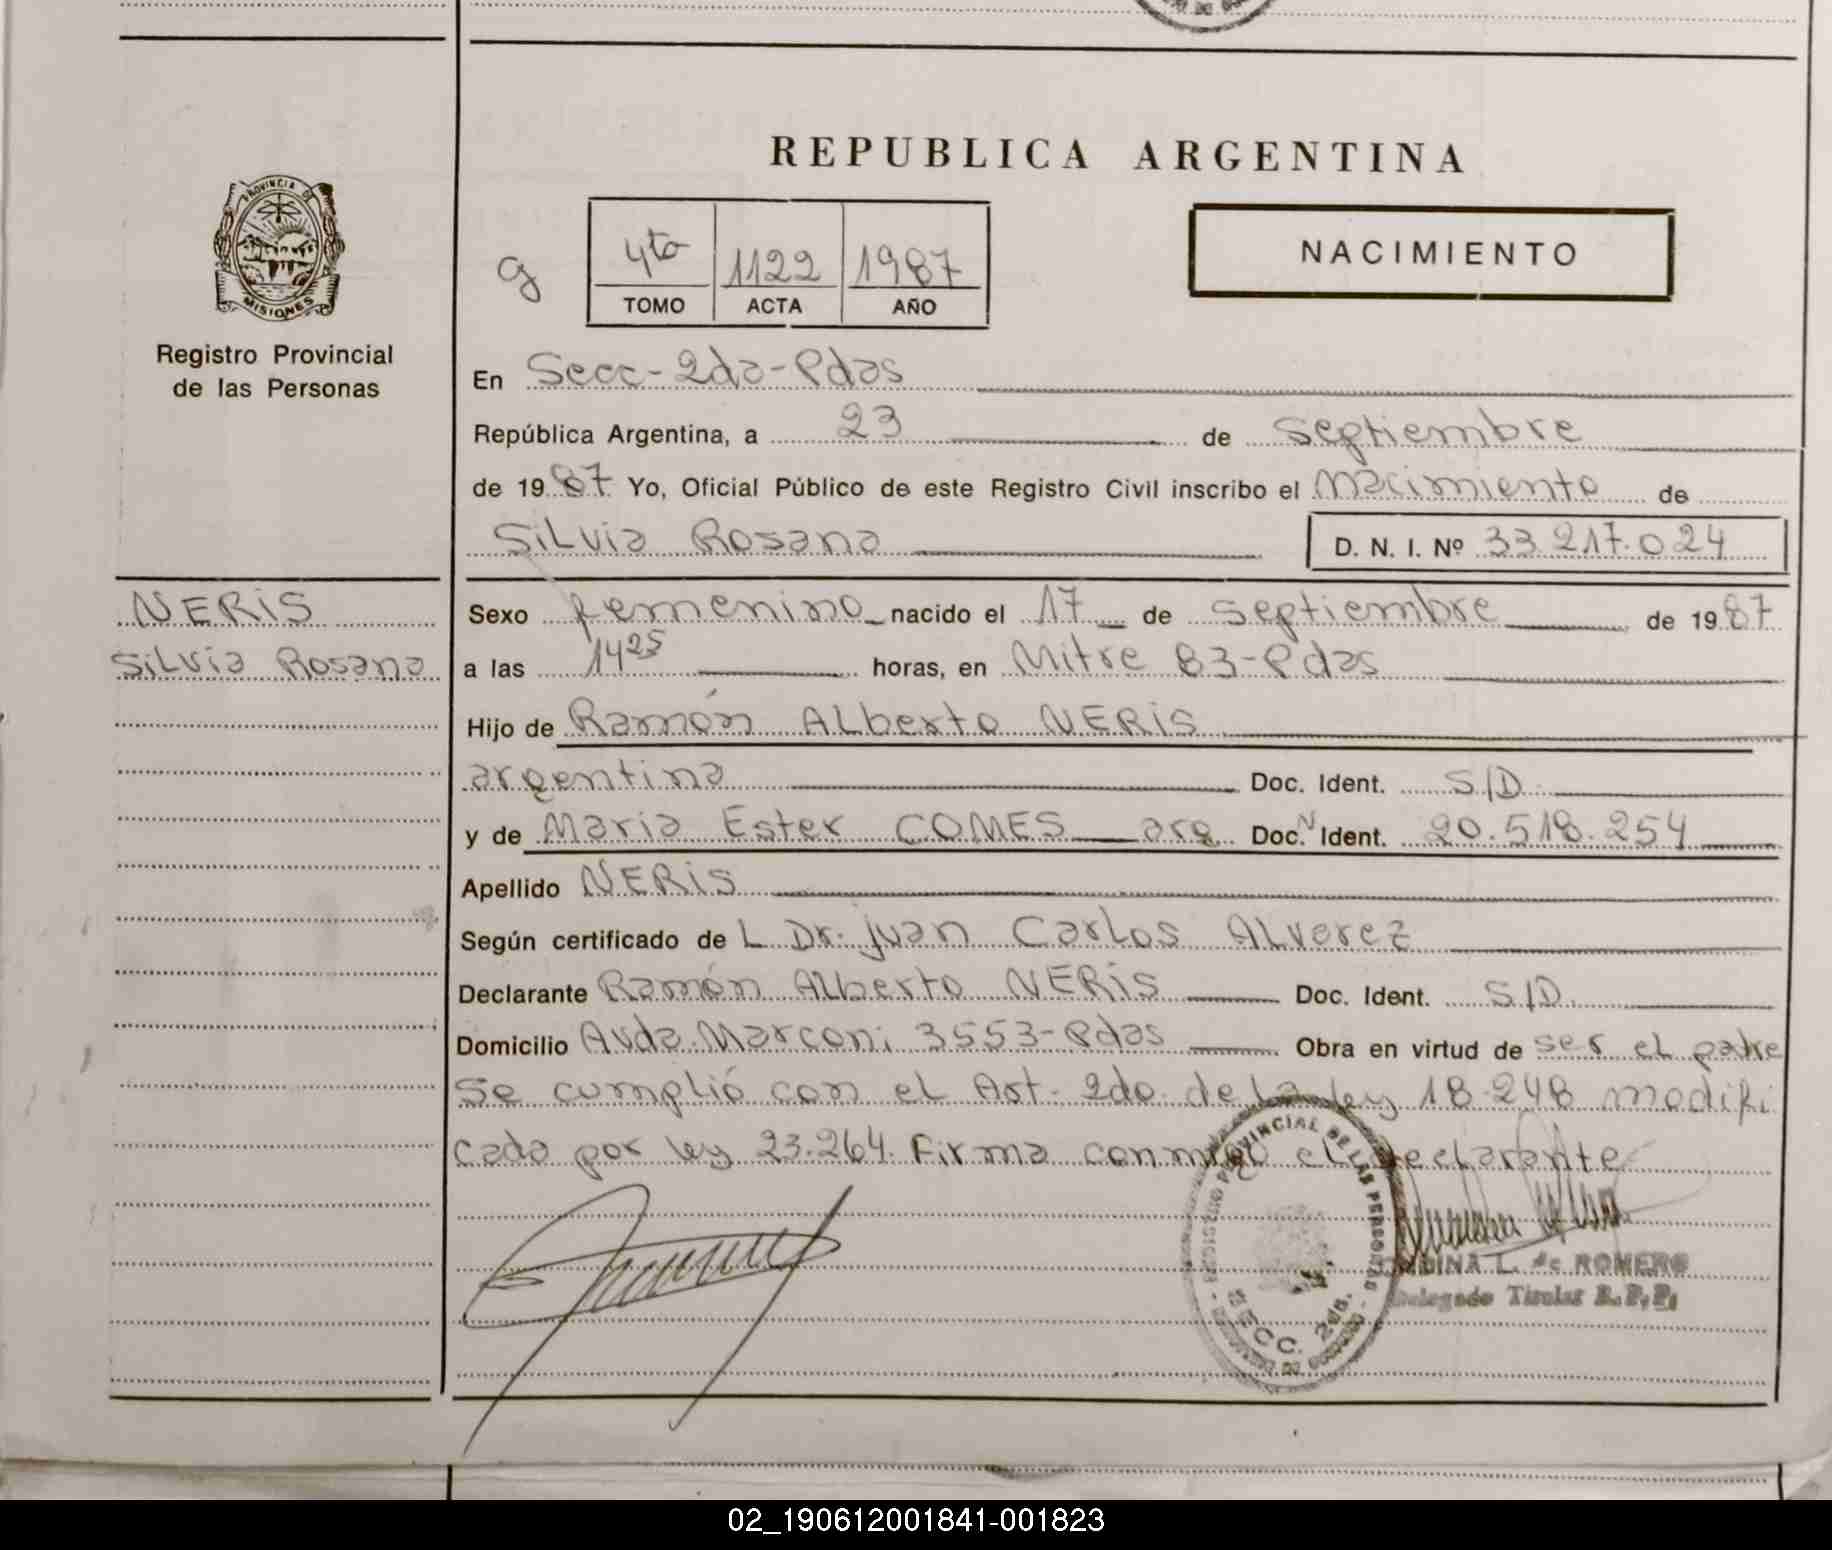 REPUBLICA ARGENTINA
PROVINCIA DE
MISIONES
Registro Provincial
de las Personas
g
4to 1122 1987
TOMO ACTA AÑO
NACIMIENTO
En Secc-2da-Pdas
República Argentina, a 23 de septiembre
de 1987 Yo, Oficial Público de este Registro Civil inscribo el nacimiento de
Silvia Rosana D. N. I. Nº 33 217.024
NERIS
Silvia Rosana
Sexo femenino nacido el 17 de septiembre de 1987
a las 14 25 horas, en Mitre 83-Pdas
Hijo de Ramón Alberto NERIS
argentina Doc. Ident. S/D
y de Maria Ester COMES arg Doc. N Ident. 20.518.254
Apellido NERIS
Según certificado de L Dr. Juan Carlos Alverez
Declarante Ramón Alberto NERIS Doc. Ident. S/D
Domicilio Avda. Marconi 3553-Pdas Obra en virtud de ser el padre
Se cumplió con el Art. 2do. de la ley 18.248 modifi
cada por ley 23.264. Firma conmigo el declarante
PROVINCIAL DE LAS PERSONAS
SECC. 2da.
L. de ROMERO
Delegado Titular R.P.P.
02_190612001841-001823